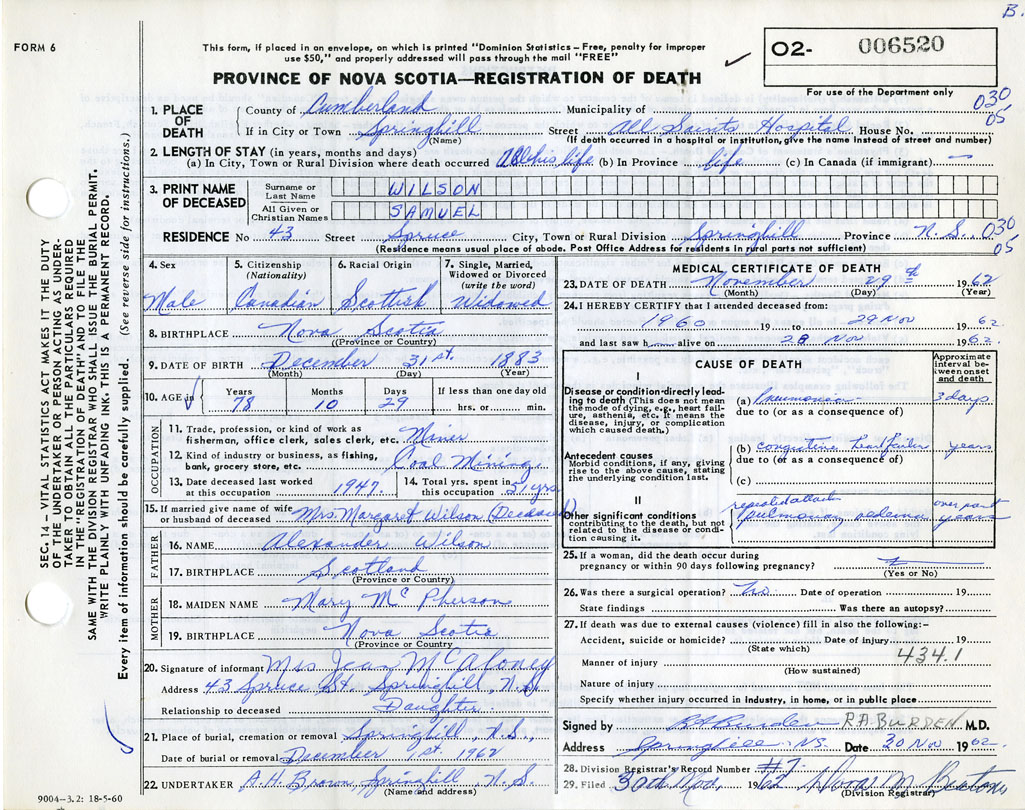 B.
FORM 6
This form, if placed in an envelope, on which is printed "Dominion Statistics – Free, penalty for improper
use $50," and properly addressed will pass through the mail "FREE"
O2- 006520
For use of the Department only
PROVINCE OF NOVA SCOTIA—REGISTRATION OF DEATH
030
05
1. PLACE OF DEATH County of Cumberland Municipality of
If in City or Town Springhill (Name) Street All Saints Hospital House No.
(If death occurred in a hospital or institution, give the name instead of street and number)
2. LENGTH OF STAY (in years, months and days)
(a) In City, Town or Rural Division where death occurred All his life (b) In Province life (c) In Canada (if immigrant) —
3. PRINT NAME OF DECEASED Surname or Last Name WILSON
All Given or Christian Names SAMUEL
RESIDENCE No 43 Street Spruce City, Town or Rural Division Springhill Province N.S. 030
05
(Residence means usual place of abode. Post Office Address for residents in rural parts not sufficient)
4. Sex Male
5. Citizenship (Nationality) Canadian
6. Racial Origin Scottish
7. Single, Married, Widowed or Divorced (write the word) Widowed
8. BIRTHPLACE Nova Scotia
(Province or Country)
9. DATE OF BIRTH December 31st. 1883
(Month) (Day) (Year)
10. AGE in Years 78 Months 10 Days 29 If less than one day old hrs. or min.
OCCUPATION
11. Trade, profession, or kind of work as fisherman, office clerk, sales clerk, etc. Miner
12. Kind of industry or business, as fishing, bank, grocery store, etc. Coal Mining
13. Date deceased last worked at this occupation 1947.
14. Total yrs. spent in this occupation 51 yrs
15. If married give name of wife or husband of deceased Mrs. Margaret Wilson (Deceased)
FATHER
16. NAME Alexander Wilson
17. BIRTHPLACE Scotland
(Province or Country)
MOTHER
18. MAIDEN NAME Mary McPherson
19. BIRTHPLACE Nova Scotia
(Province or Country)
20. Signature of informant Mrs Jean McAloney
Address 43 Spruce St. Springhill, N.S.
Relationship to deceased Daughter
21. Place of burial, cremation or removal Springhill, N.S.,
Date of burial or removal December 1st. 1962
22. UNDERTAKER A.H. Brown, Springhill, N.S.
(Name and address)
9004–3.2: 18-5-60
MEDICAL CERTIFICATE OF DEATH
23. DATE OF DEATH November 29th 1962
(Month) (Day) (Year)
24. I HEREBY CERTIFY that I attended deceased from:
1960 19 to 29 Nov 1962
and last saw h alive on 28 Nov 1962
CAUSE OF DEATH
Approximate interval between onset and death
I
Disease or condition directly leading to death (This does not mean the mode of dying, e.g., heart failure, asthenia, etc. It means the disease, injury, or complication which caused death.)
(a) Pneumonia 3 days
due to (or as a consequence of)
Antecedent causes
Morbid conditions, if any, giving rise to the above cause, stating the underlying condition last.
(b) congestive heart failure years
due to (or as a consequence of)
(c)
II
Other significant conditions contributing to the death, but not related to the disease or condition causing it.
repeated attacks
pulmonary oedema over past years
25. If a woman, did the death occur during pregnancy or within 90 days following pregnancy?
(Yes or No)
26. Was there a surgical operation? No. Date of operation 19
State findings Was there an autopsy?
27. If death was due to external causes (violence) fill in also the following:-
Accident, suicide or homicide? Date of injury 19
(State which)
434.1
Manner of injury
(How sustained)
Nature of injury
Specify whether injury occurred in industry, in home, or in public place
Signed by R A Burden R.A. BURDEN M.D.
Address Springhill NS. Date 30 Nov 1962
28. Division Registrar's Record Number #7
29. Filed 30th Nov. 1962
(Division Registrar)
SEC. 14 – VITAL STATISTICS ACT MAKES IT THE DUTY
OF THE UNDERTAKER OR PERSON ACTING AS UNDER-
TAKER TO OBTAIN ALL THE PARTICULARS REQUIRED
IN THE "REGISTRATION OF DEATH" AND TO FILE THE
SAME WITH THE DIVISION REGISTRAR WHO SHALL ISSUE THE BURIAL PERMIT.
WRITE PLAINLY WITH UNFADING INK. THIS IS A PERMANENT RECORD.
Every item of information should be carefully supplied. (See reverse side for instructions.)